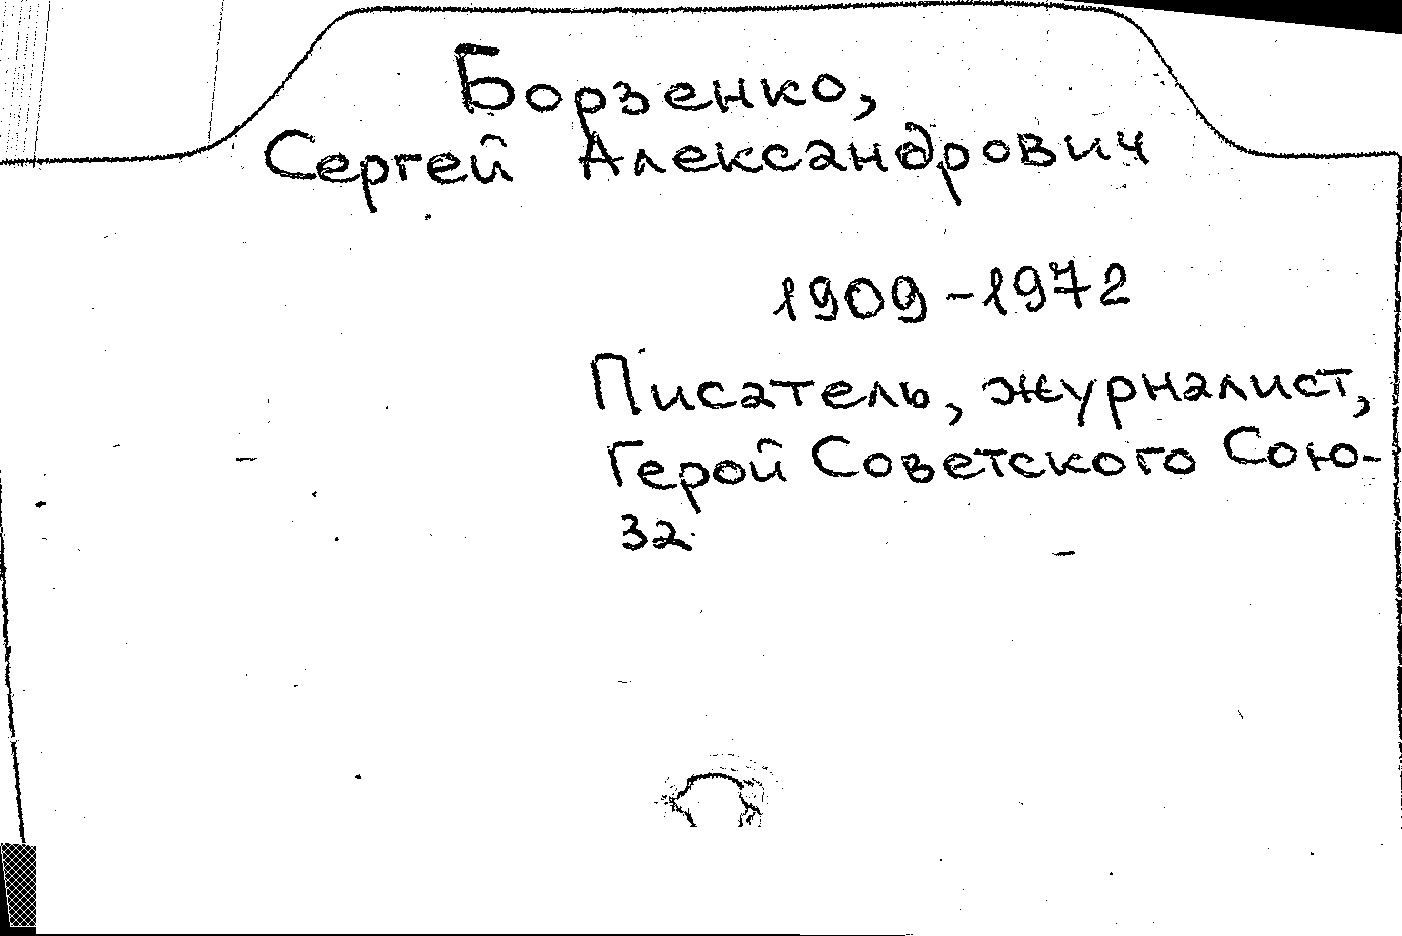 Борзенко,
Сергей Александрович
1909-1972
Писатель, журналист,
Герой Советского Сою-
за